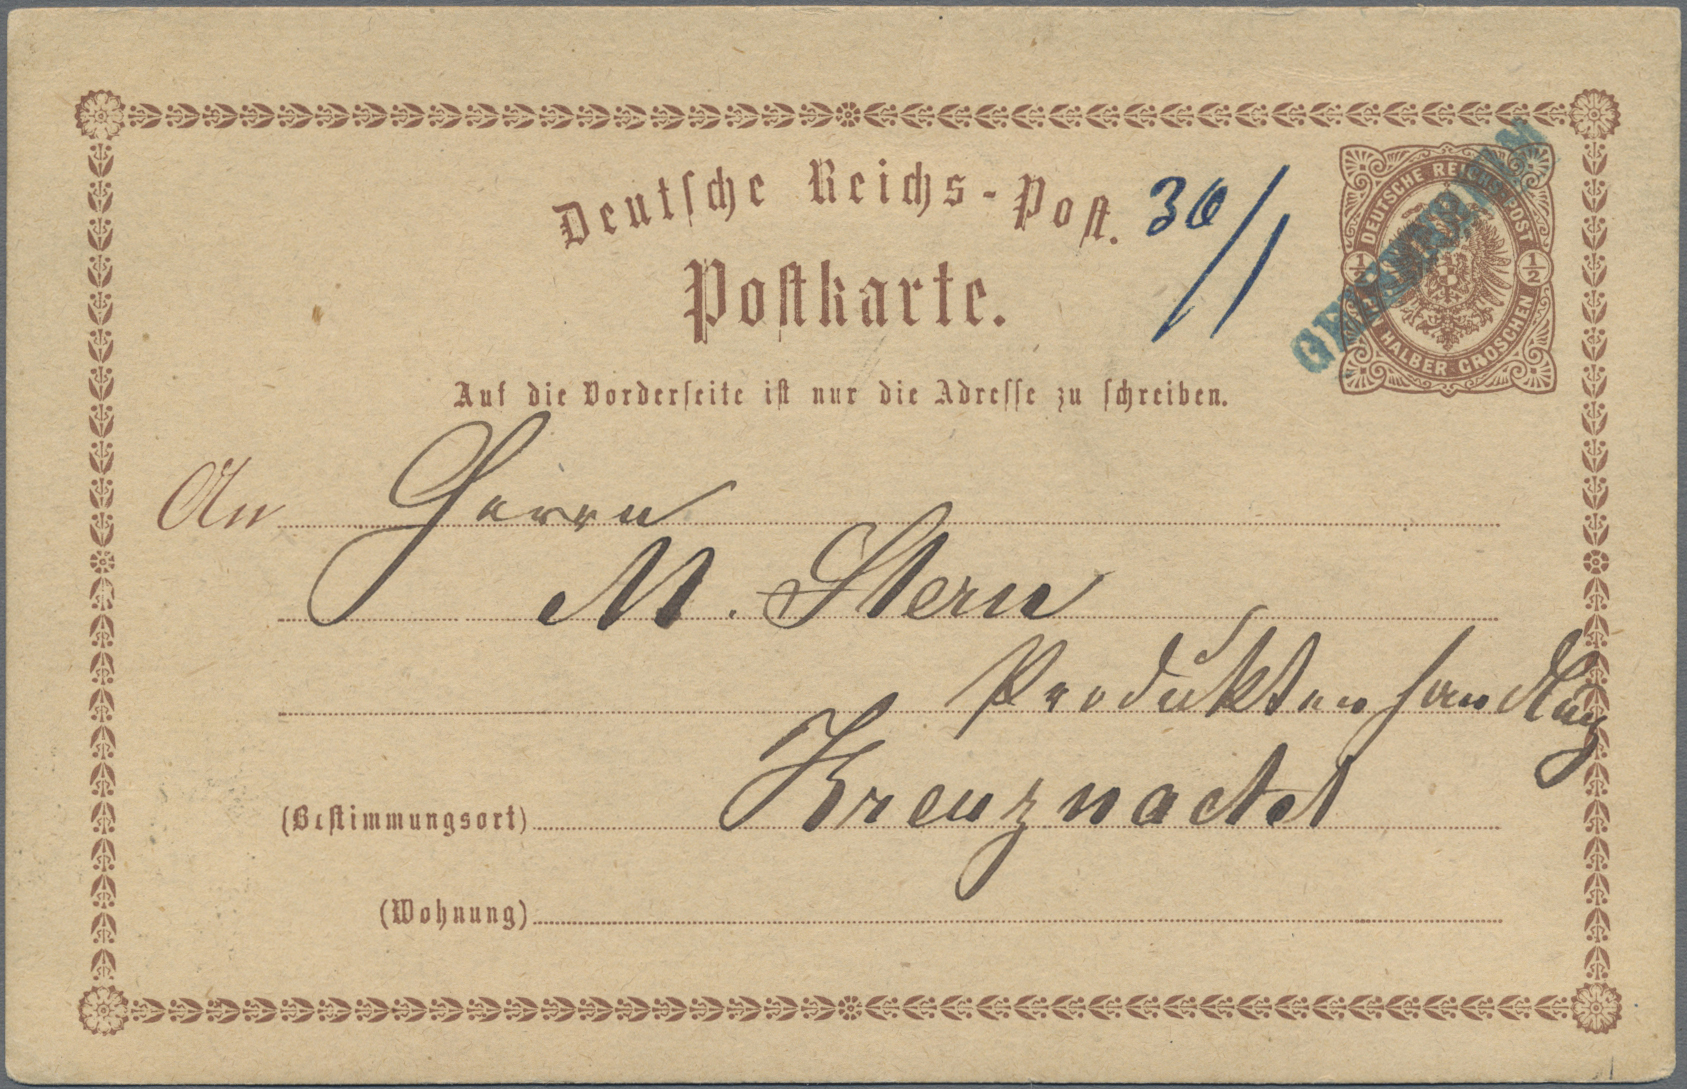 Deutsche Reichs-Post.
30/1
Postkarte.
DEUTSCHE REICHS-POST
1/2 1/2
EIN HALBER GROSCHEN
Auf die Vorderseite ist nur die Adresse zu schreiben.
An Herrn
M. Stern
Produktenhandlung
Kreuznach
(Bestimmungsort)
(Wohnung)